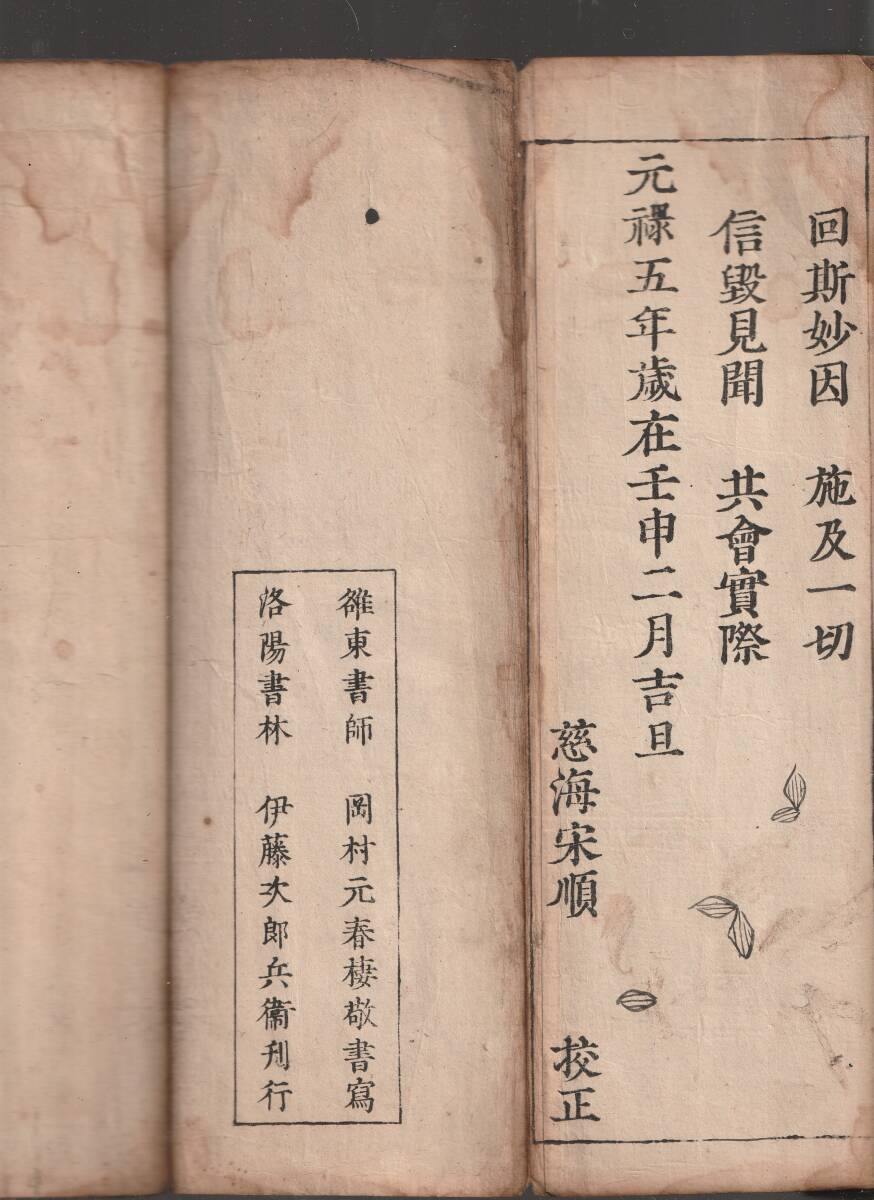 回斯妙因　施及一切
信毀見聞　共會實際
元祿五年歲在壬申二月吉旦
慈海宋順　挍正
雒東書師　岡村元春棲敬書寫
洛陽書林　伊藤次郎兵衞刋行